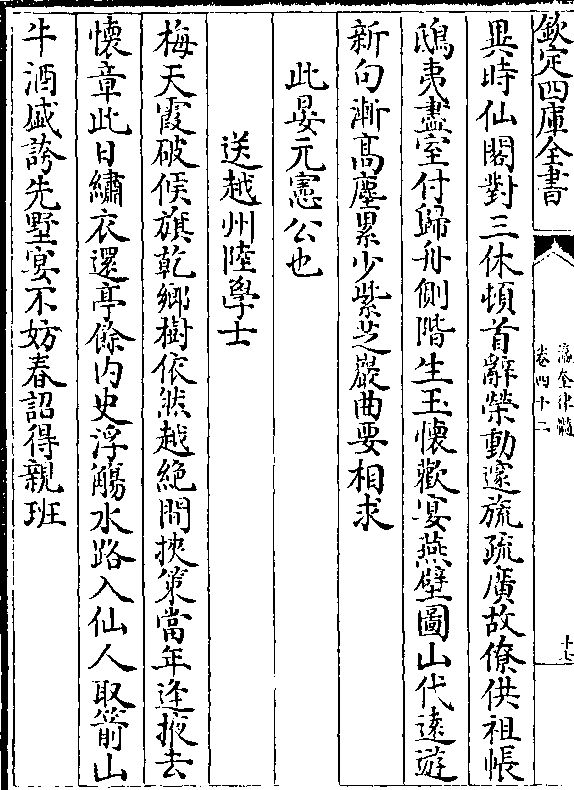 欽定四庫全書
瀛奎律髓
卷四十二
十七
異時仙閣對三休頓首辭榮動邃旒疏廣故僚供祖帳
鴟夷盡室付歸舟側階生玉懷歡宴燕壁圖山代遠遊
新句漸高塵累少紫芝巖曲要相求
此晏元憲公也
送越州陸學士
梅天霞破候旗乾鄉樹依然越絶間挾策當年逢掖去
懷章此日繡衣還亭餘内史浮觴水路入仙人取箭山
牛酒盛誇先墅宴不妨春詔得親班